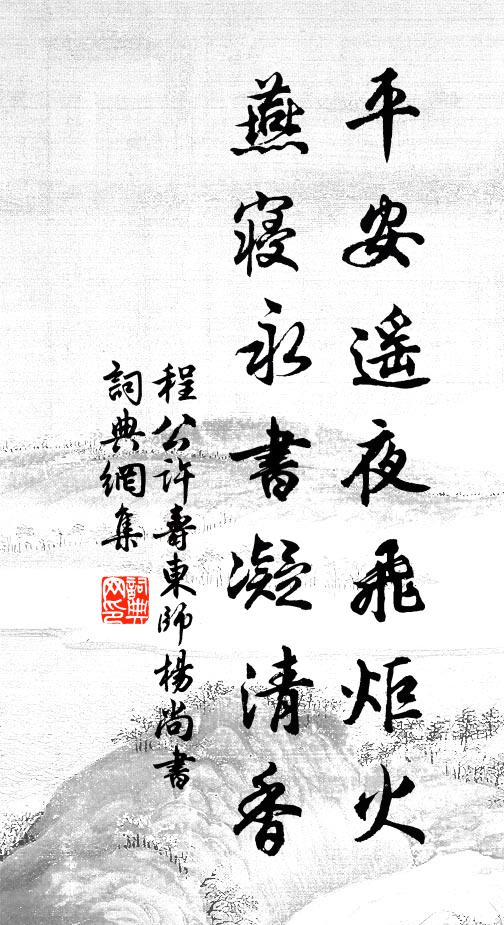 平安遥夜飛炬火
燕寢永書凝清香
程公許壽東師楊尚書
詞典網集
詞典网印